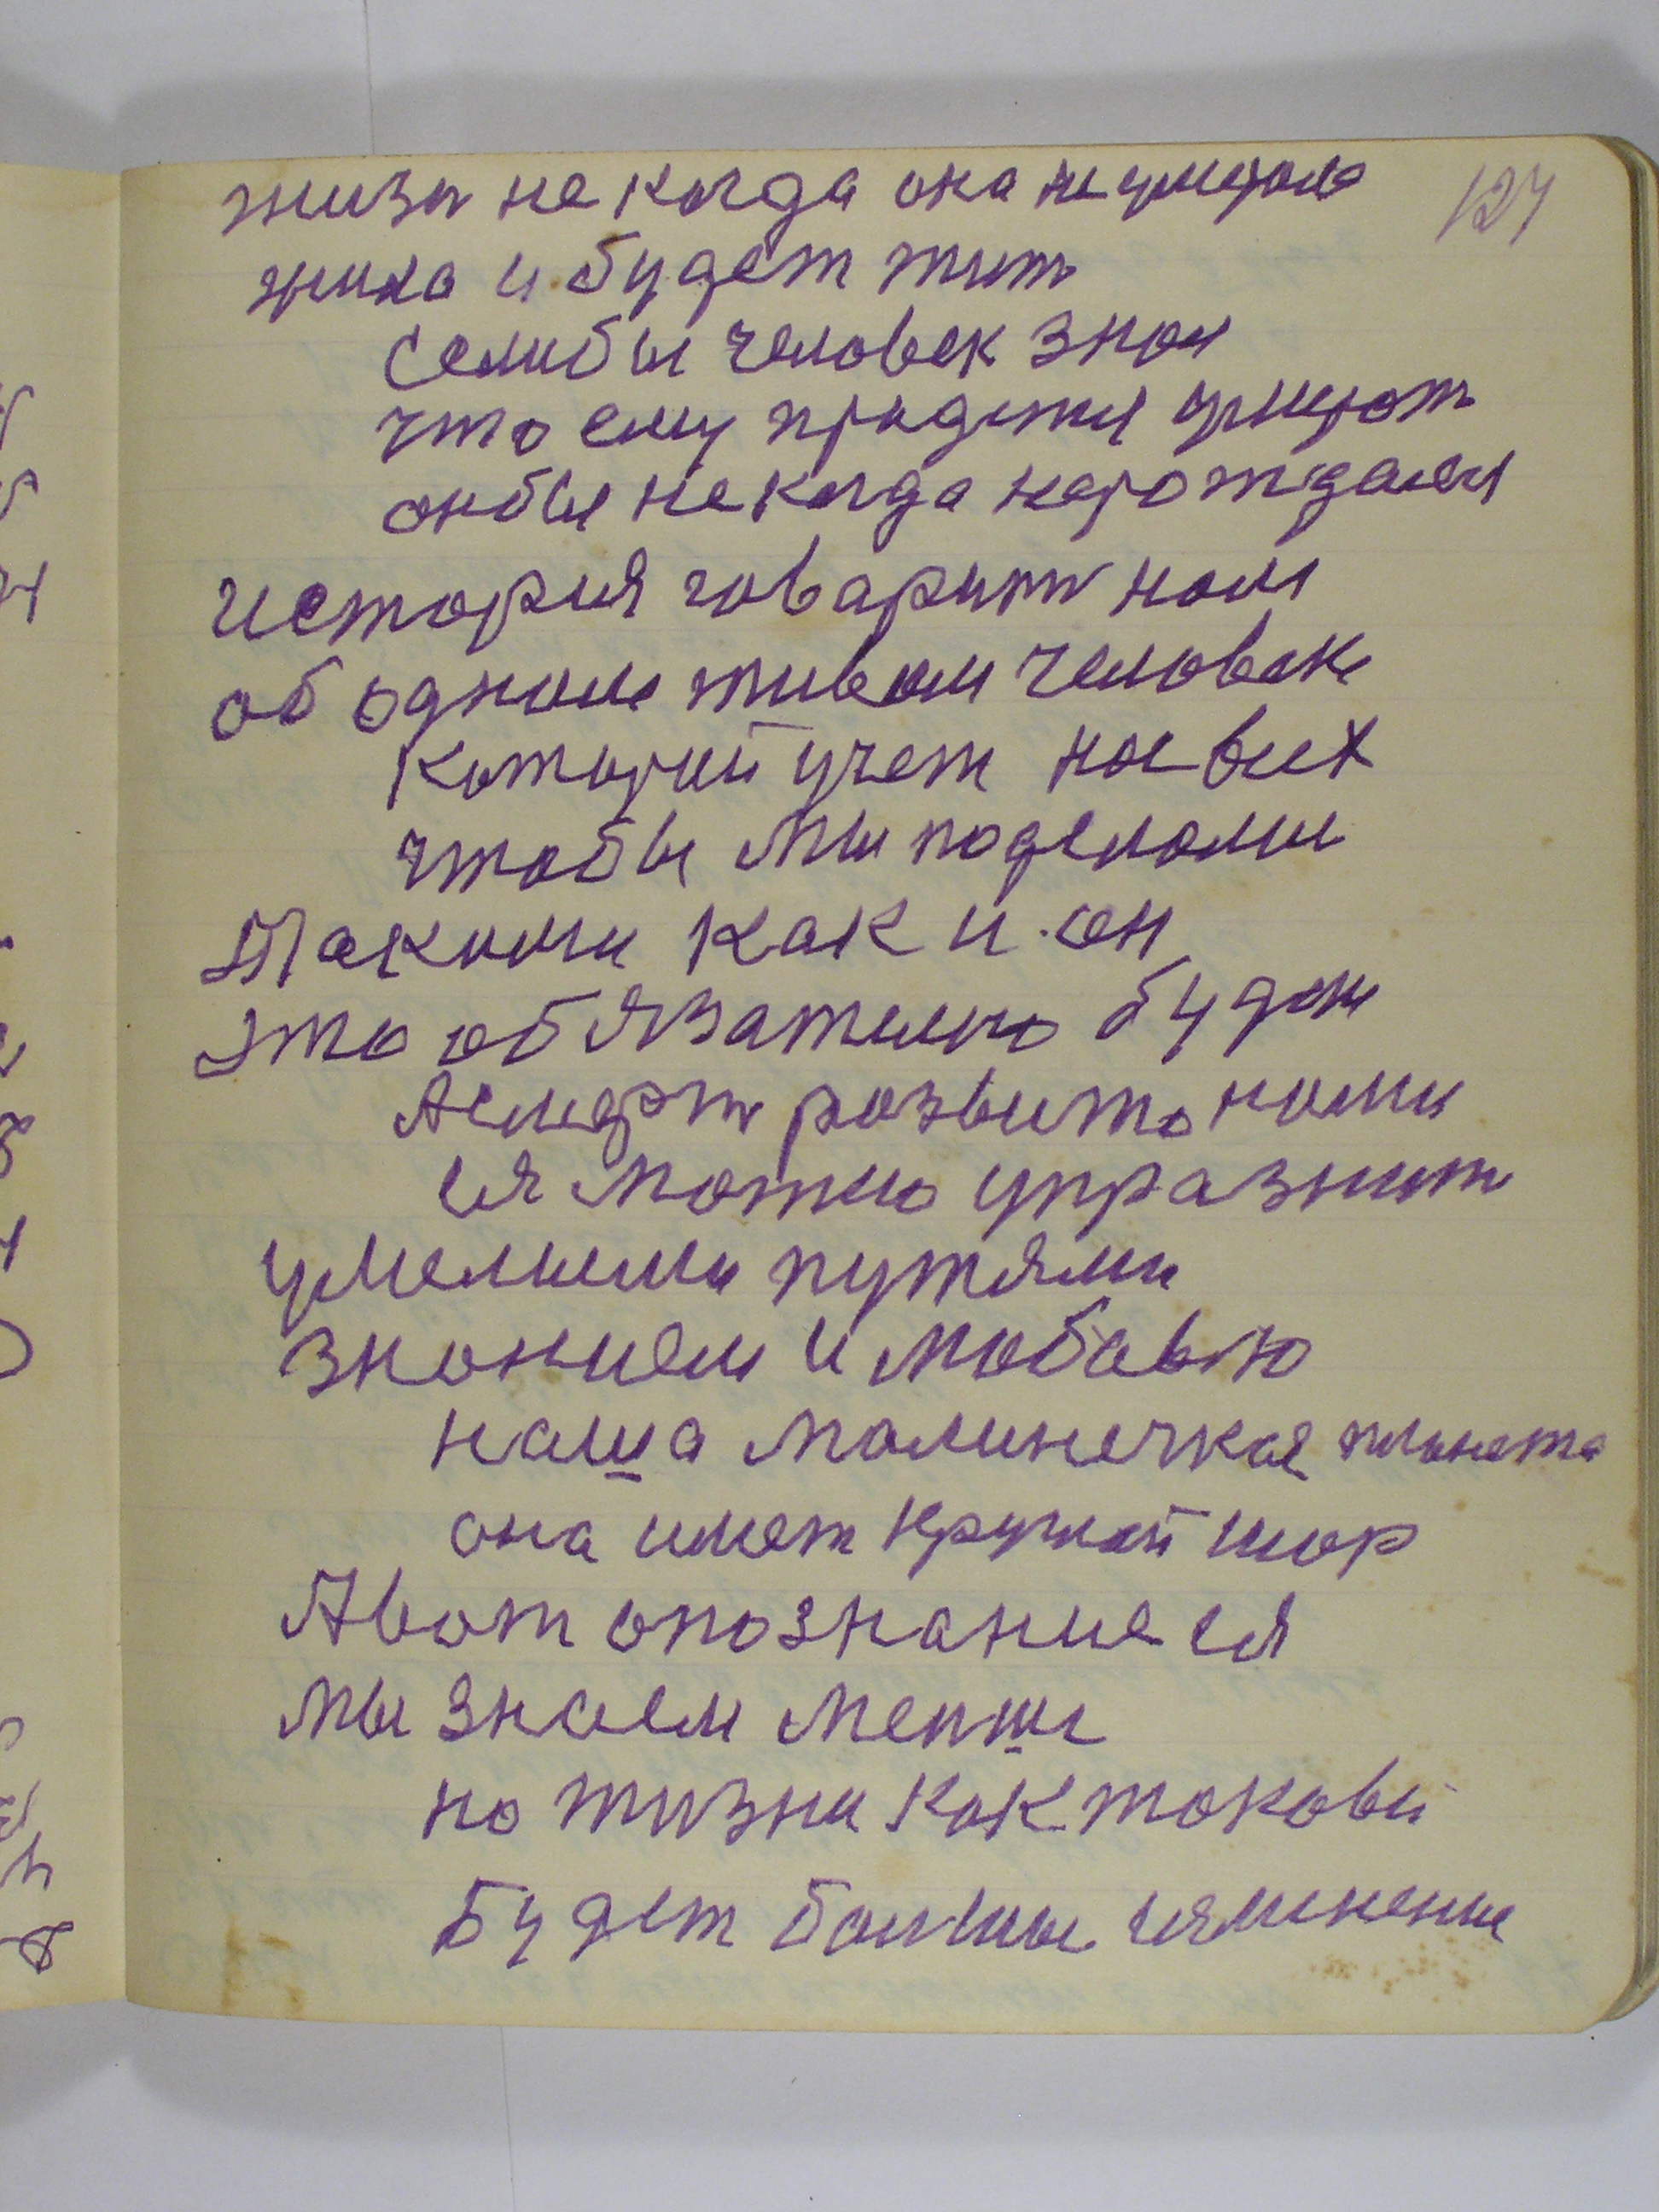 124
жизн не когда она не умерала
жила и будет жит
Селибы человек знал
что ему придется умерат
онбы не когда нерождался
история говарит нам
об одном живом человеке
который учет нас всех
чтобы мы поделалы
Такими как и он
это обязателно будет
Асмерт розвито нами
ея можно упразнит
умелыеми путями
знанием и любовю
наша малинечкая планета
она имет круглай шар
Авот опознание ея
мы знаем менши
но жизни как таковы
будет болшые изменение